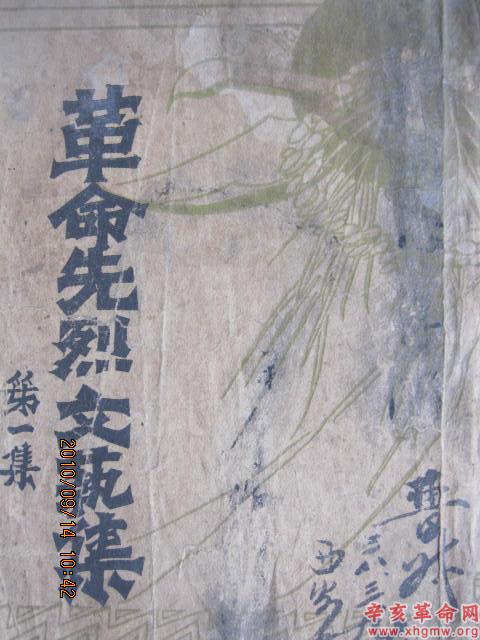 革命先烈文藝集
第一集
2010/09/14 10:42
三八·三
西安
辛亥革命网
www.xhgmw.org